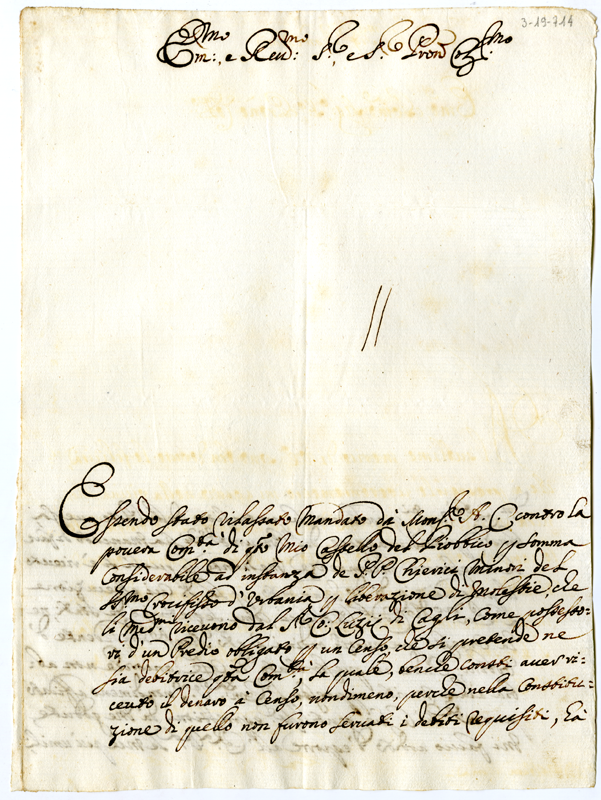 3-19-714
Em:mo, e Reu:mo S.r, e S.r Pron Col:mo
Essendo stato rilassato Mandato dà Mons.r A. C. contro la
pouera Com.tà di q.to mio Castello del Piobbico p somma
Considerabile ad instanza de P.P. Chierici Minori del
SS.mo Crocifisso d'Urbania p liberazione di molestie, che
li med.mi riceuono dal S.r Co: Luzi di Cagli, come possesso-
ri d'un Predio obligato p un Censo, che si pretende ne
sia debitrice q.ta Com.tà, la quale, benche consti auer ri-
ceuto il denaro à Censo, nondimeno, perche nella Constitu-
zione di quello non furono seruati i debiti requisiti, hà